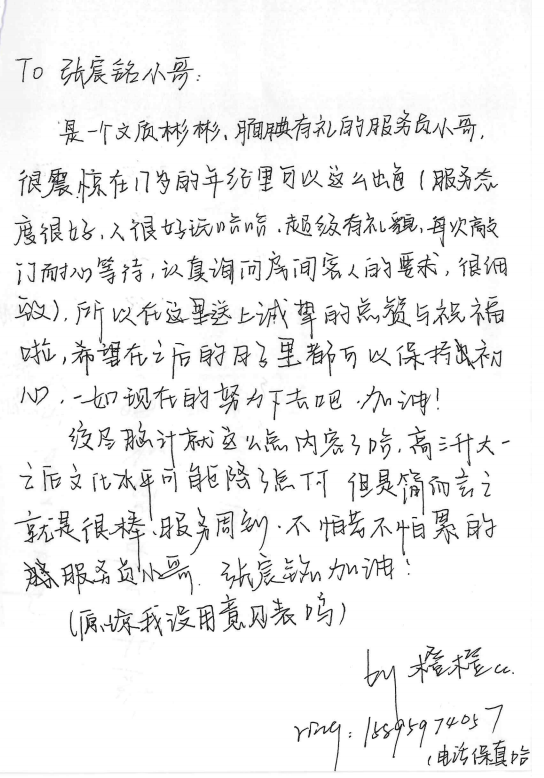 To 张宸铭小哥:
是一个文质彬彬、腼腆有礼的服务员小哥,
很震惊在17岁的年纪里可以这么出色(服务态
度很好,人很好玩哈哈,超级有礼貌,每次敲
门耐心等待,认真询问房间客人的要求,很细
致),所以在这里送上诚挚的点赞与祝福
啦,希望在之后的日子里都可以保持出初
心,一如现在的努力下去吧,加油!
绞尽脑汁就这么点内容了哈,高三升大一
之后文化水平可能降了点TT 但是简而言之
就是很棒、服务周到、不怕苦不怕累的
服务员小哥,张宸铭加油!
(原谅我没用意见表呜)
by 橙橙cc.
ring: 15895974057
(电话保真哈